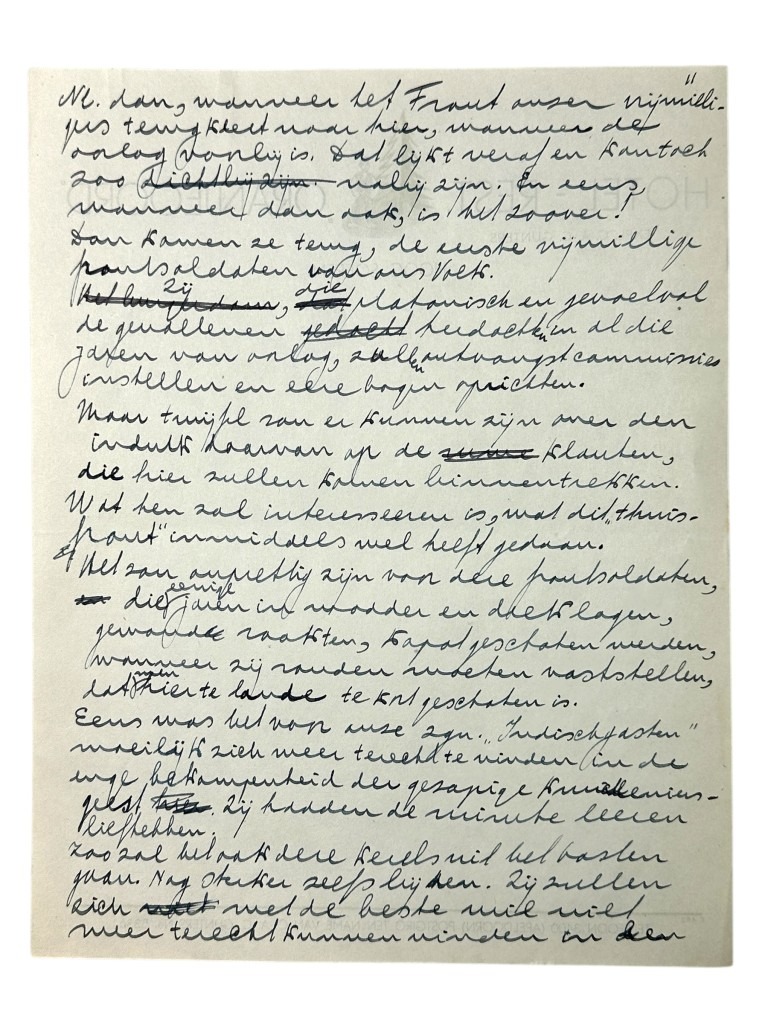 11
Nl. dan, wanneer het Front onzer vrijwilli-
gers terugkeert naar hier, wanneer de
oorlog voorbij is. Dat lijkt veraf en kan toch
zoo dichtbij zijn. nabij zijn. En eens,
wanneer dan ook, is het zoover!
Dan komen ze terug, de eerste vrijwillige
frontsoldaten van ons Volk.
zij die
Het burgerdom, dat platonisch en gevoelvol
de gevallenen gedacht herdachten in al die
jaren van oorlog, zullen ontvangstcommissies
instellen en eerebogen oprichten.
Maar twijfel zou er kunnen zijn over den
indruk daarvan op de klanten,
die hier zullen komen binnentrekken.
Wat hen zal interesseeren is, wat dit "thuis-
front" inmiddels wel heeft gedaan.
Het zou onprettig zijn voor deze frontsoldaten,
die eenige jaren in modder en drek lagen,
gewond raakten, kapotgeschoten werden,
wanneer zij zouden moeten vaststellen,
dat men hier te lande te kort geschoten is.
Eens was het voor onze zgn. "Indischgasten"
moeilijk zich weer terecht te vinden in de
enge bekrompenheid der gezapige kruideniers-
geest hier. Zij hadden de ruimte leeren
liefhebben.
Zoo zal het ook deze kerels uit het oosten
gaan. Nog sterker zelfs bij hen. Zij zullen
zich niet met de beste wil niet
meer terecht kunnen vinden in den
HOTEL